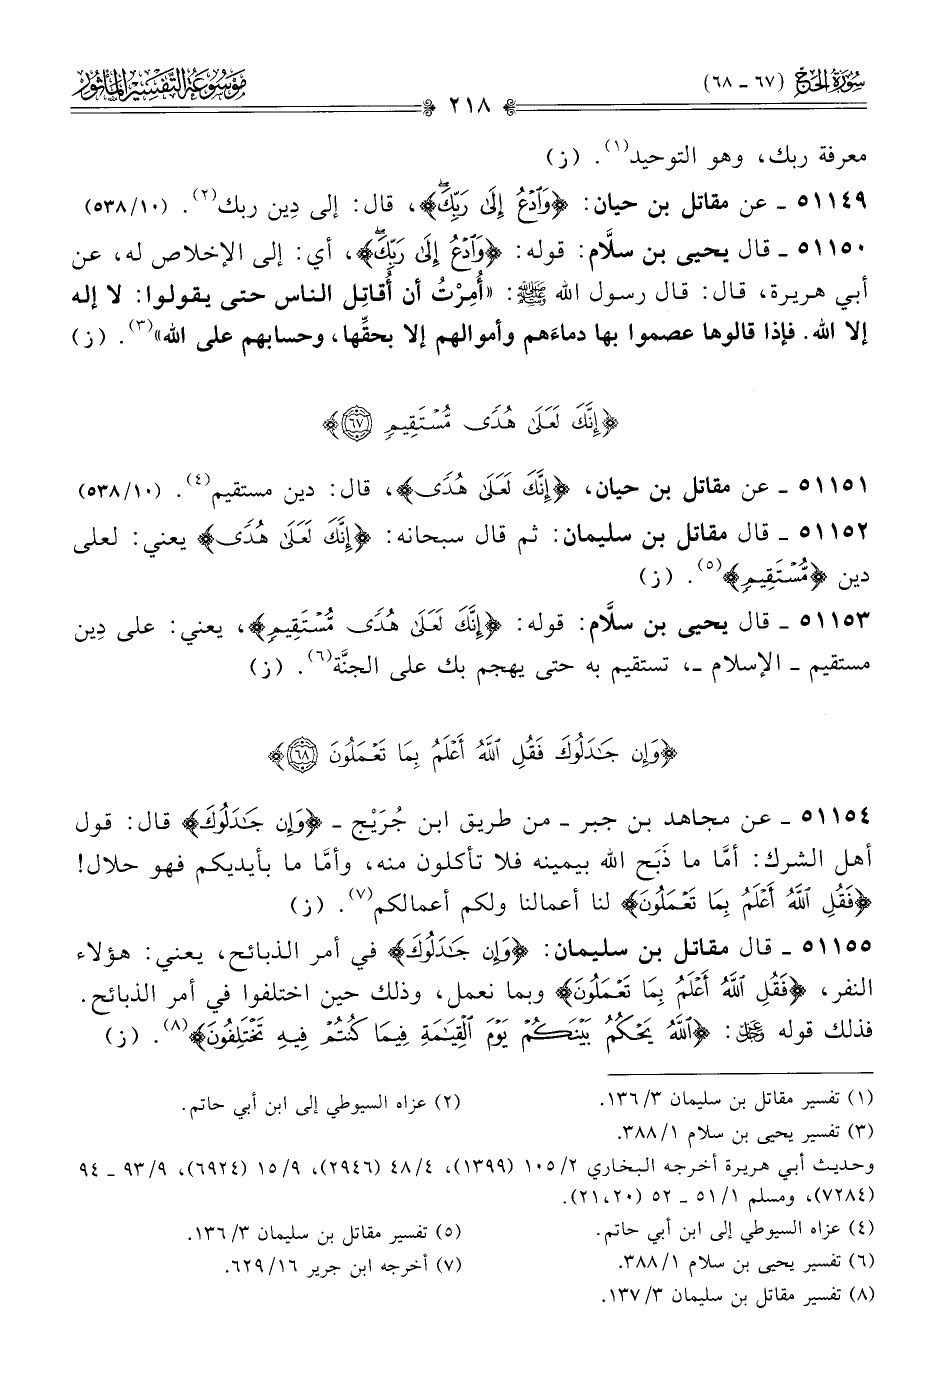 سُورَةُ الحَجّ (٦٧ - ٦٨)
٢١٨
مَوْسُوعَة التَّفْسِيْرِ المَأْثُور
معرفة ربك، وهو التوحيد(١). (ز)
٥١١٤٩ - عن مقاتل بن حيان: ﴿وَٱدْعُ إِلَىٰ رَبِّكَۖ﴾، قال: إلى دِين ربك(٢). (١٠/ ٥٣٨)
٥١١٥٠ - قال يحيى بن سلَّام: قوله: ﴿وَٱدْعُ إِلَىٰ رَبِّكَۖ﴾، أي: إلى الإخلاص له، عن
أبي هريرة، قال: قال رسول الله ﷺ: «أُمِرْتُ أن أُقاتِل الناس حتى يقولوا: لا إله
إلا الله. فإذا قالوها عصموا بها دماءَهم وأموالهم إلا بحقِّها، وحسابهم على الله»(٣). (ز)
﴿إِنَّكَ لَعَلَىٰ هُدًى مُّسْتَقِيمٍ ٦٧﴾
٥١١٥١ - عن مقاتل بن حيان، ﴿إِنَّكَ لَعَلَىٰ هُدًى﴾، قال: دين مستقيم(٤). (١٠/ ٥٣٨)
٥١١٥٢ - قال مقاتل بن سليمان: ثم قال سبحانه: ﴿إِنَّكَ لَعَلَىٰ هُدًى﴾ يعني: لعلى
دين ﴿مُّسْتَقِيمٍ﴾(٥). (ز)
٥١١٥٣ - قال يحيى بن سلَّام: قوله: ﴿إِنَّكَ لَعَلَىٰ هُدًى مُّسْتَقِيمٍ﴾، يعني: على دِين
مستقيم - الإسلام -، تستقيم به حتى يهجم بك على الجنَّة(٦). (ز)
﴿وَإِن جَٰدَلُوكَ فَقُلِ ٱللَّهُ أَعْلَمُ بِمَا تَعْمَلُونَ ٦٨﴾
٥١١٥٤ - عن مجاهد بن جبر - من طريق ابن جُرَيْج - ﴿وَإِن جَٰدَلُوكَ﴾ قال: قول
أهل الشرك: أمَّا ما ذَبَح الله بيمينه فلا تأكلون منه، وأمَّا ما بأيديكم فهو حلال!
﴿فَقُلِ ٱللَّهُ أَعْلَمُ بِمَا تَعْمَلُونَ﴾ لنا أعمالنا ولكم أعمالكم(٧). (ز)
٥١١٥٥ - قال مقاتل بن سليمان: ﴿وَإِن جَٰدَلُوكَ﴾ في أمر الذبائح، يعني: هؤلاء
النفر، ﴿فَقُلِ ٱللَّهُ أَعْلَمُ بِمَا تَعْمَلُونَ﴾ وبما نعمل، وذلك حين اختلفوا في أمر الذبائح.
فذلك قوله ﷻ: ﴿ٱللَّهُ يَحْكُمُ بَيْنَكُمْ يَوْمَ ٱلْقِيَٰمَةِ فِيمَا كُنتُمْ فِيهِ تَخْتَلِفُونَ﴾(٨). (ز)
(١) تفسير مقاتل بن سليمان ٣/ ١٣٦.
(٢) عزاه السيوطي إلى ابن أبي حاتم.
(٣) تفسير يحيى بن سلام ١/ ٣٨٨.
وحديث أبي هريرة أخرجه البخاري ٢/ ١٠٥ (١٣٩٩)، ٤/ ٤٨ (٢٩٤٦)، ٩/ ١٥ (٦٩٢٤)، ٩/ ٩٣ - ٩٤
(٧٢٨٤)، ومسلم ١/ ٥١ - ٥٢ (٢٠، ٢١).
(٤) عزاه السيوطي إلى ابن أبي حاتم.
(٥) تفسير مقاتل بن سليمان ٣/ ١٣٦.
(٦) تفسير يحيى بن سلام ١/ ٣٨٨.
(٧) أخرجه ابن جرير ١٦/ ٦٢٩.
(٨) تفسير مقاتل بن سليمان ٣/ ١٣٧.